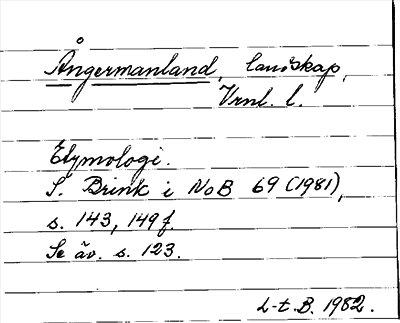 Ångermanland, landskap,
Vrnl. l.
Etymologi.
S. Brink i NoB 69 (1981),
s. 143, 149 f.
Se äv. s. 123.
L-t. B. 1982.